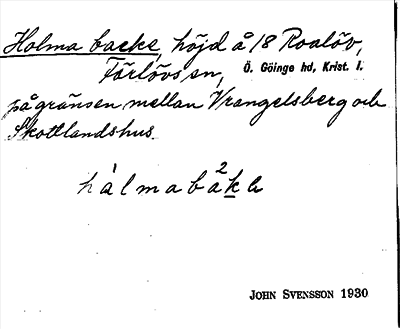 Holma backe, höjd å 18 Roalöv,
Färlövs sn, Ö. Göinge hd, Krist. l.
på gränsen mellan Vrangelsberg och
Skottlandshus.
hålmabåke
JOHN SVENSSON 1930